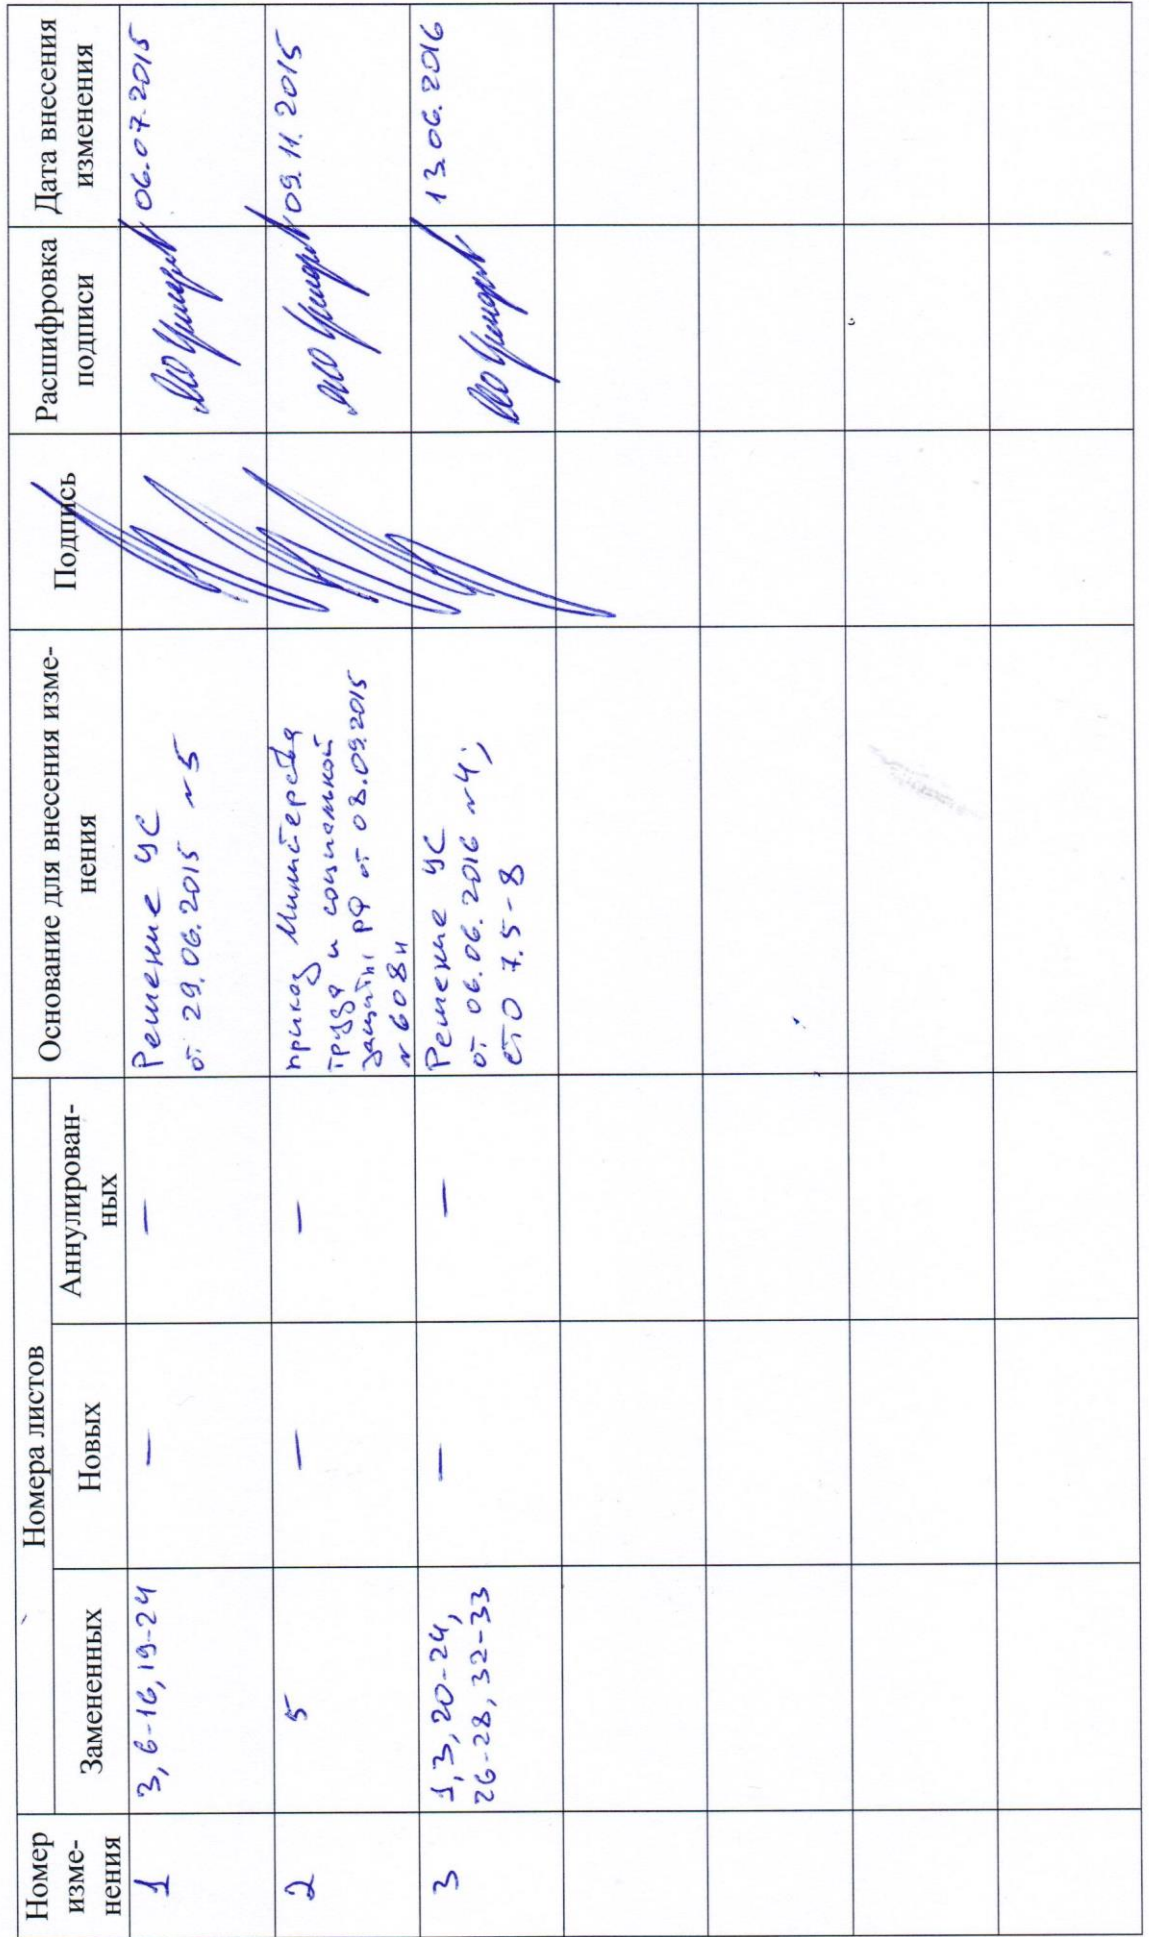 Номер изме-
нения
Номера листов
Замененных
Новых
Аннулирован-
ных
Основание для внесения изме-
нения
Подпись
Расшифровка
подписи
Дата внесения
изменения
1
3, 6-16, 19-24
—
—
Решение УС
от 29.06.2015 №5
06.07.2015
2
5
—
—
приказ Министерства
труда и социальной
защиты РФ от 08.09.2015
№ 608н
09.11.2015
3
1, 3, 20-24,
26-28, 32-33
—
—
Решение УС
от 06.06.2016 №4;
СТО 7.5-8
13.06.2016